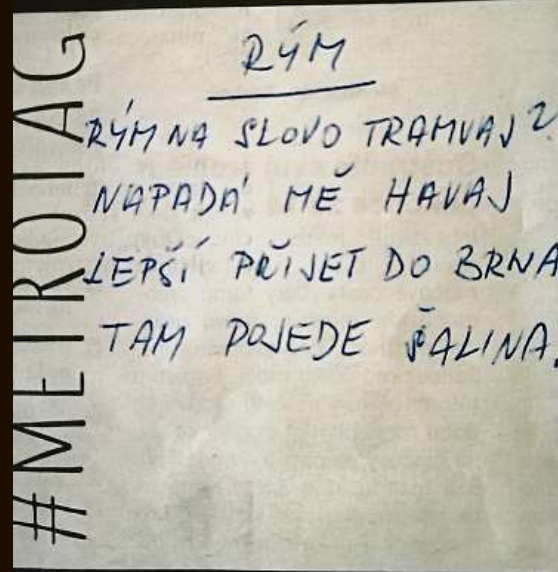 #METROTAG
RÝM
RÝM NA SLOVO TRAMVAJ?
NAPADÁ MĚ HAVAJ
LEPŠÍ PŘIJET DO BRNA
TAM POJEDE ŠALINA.